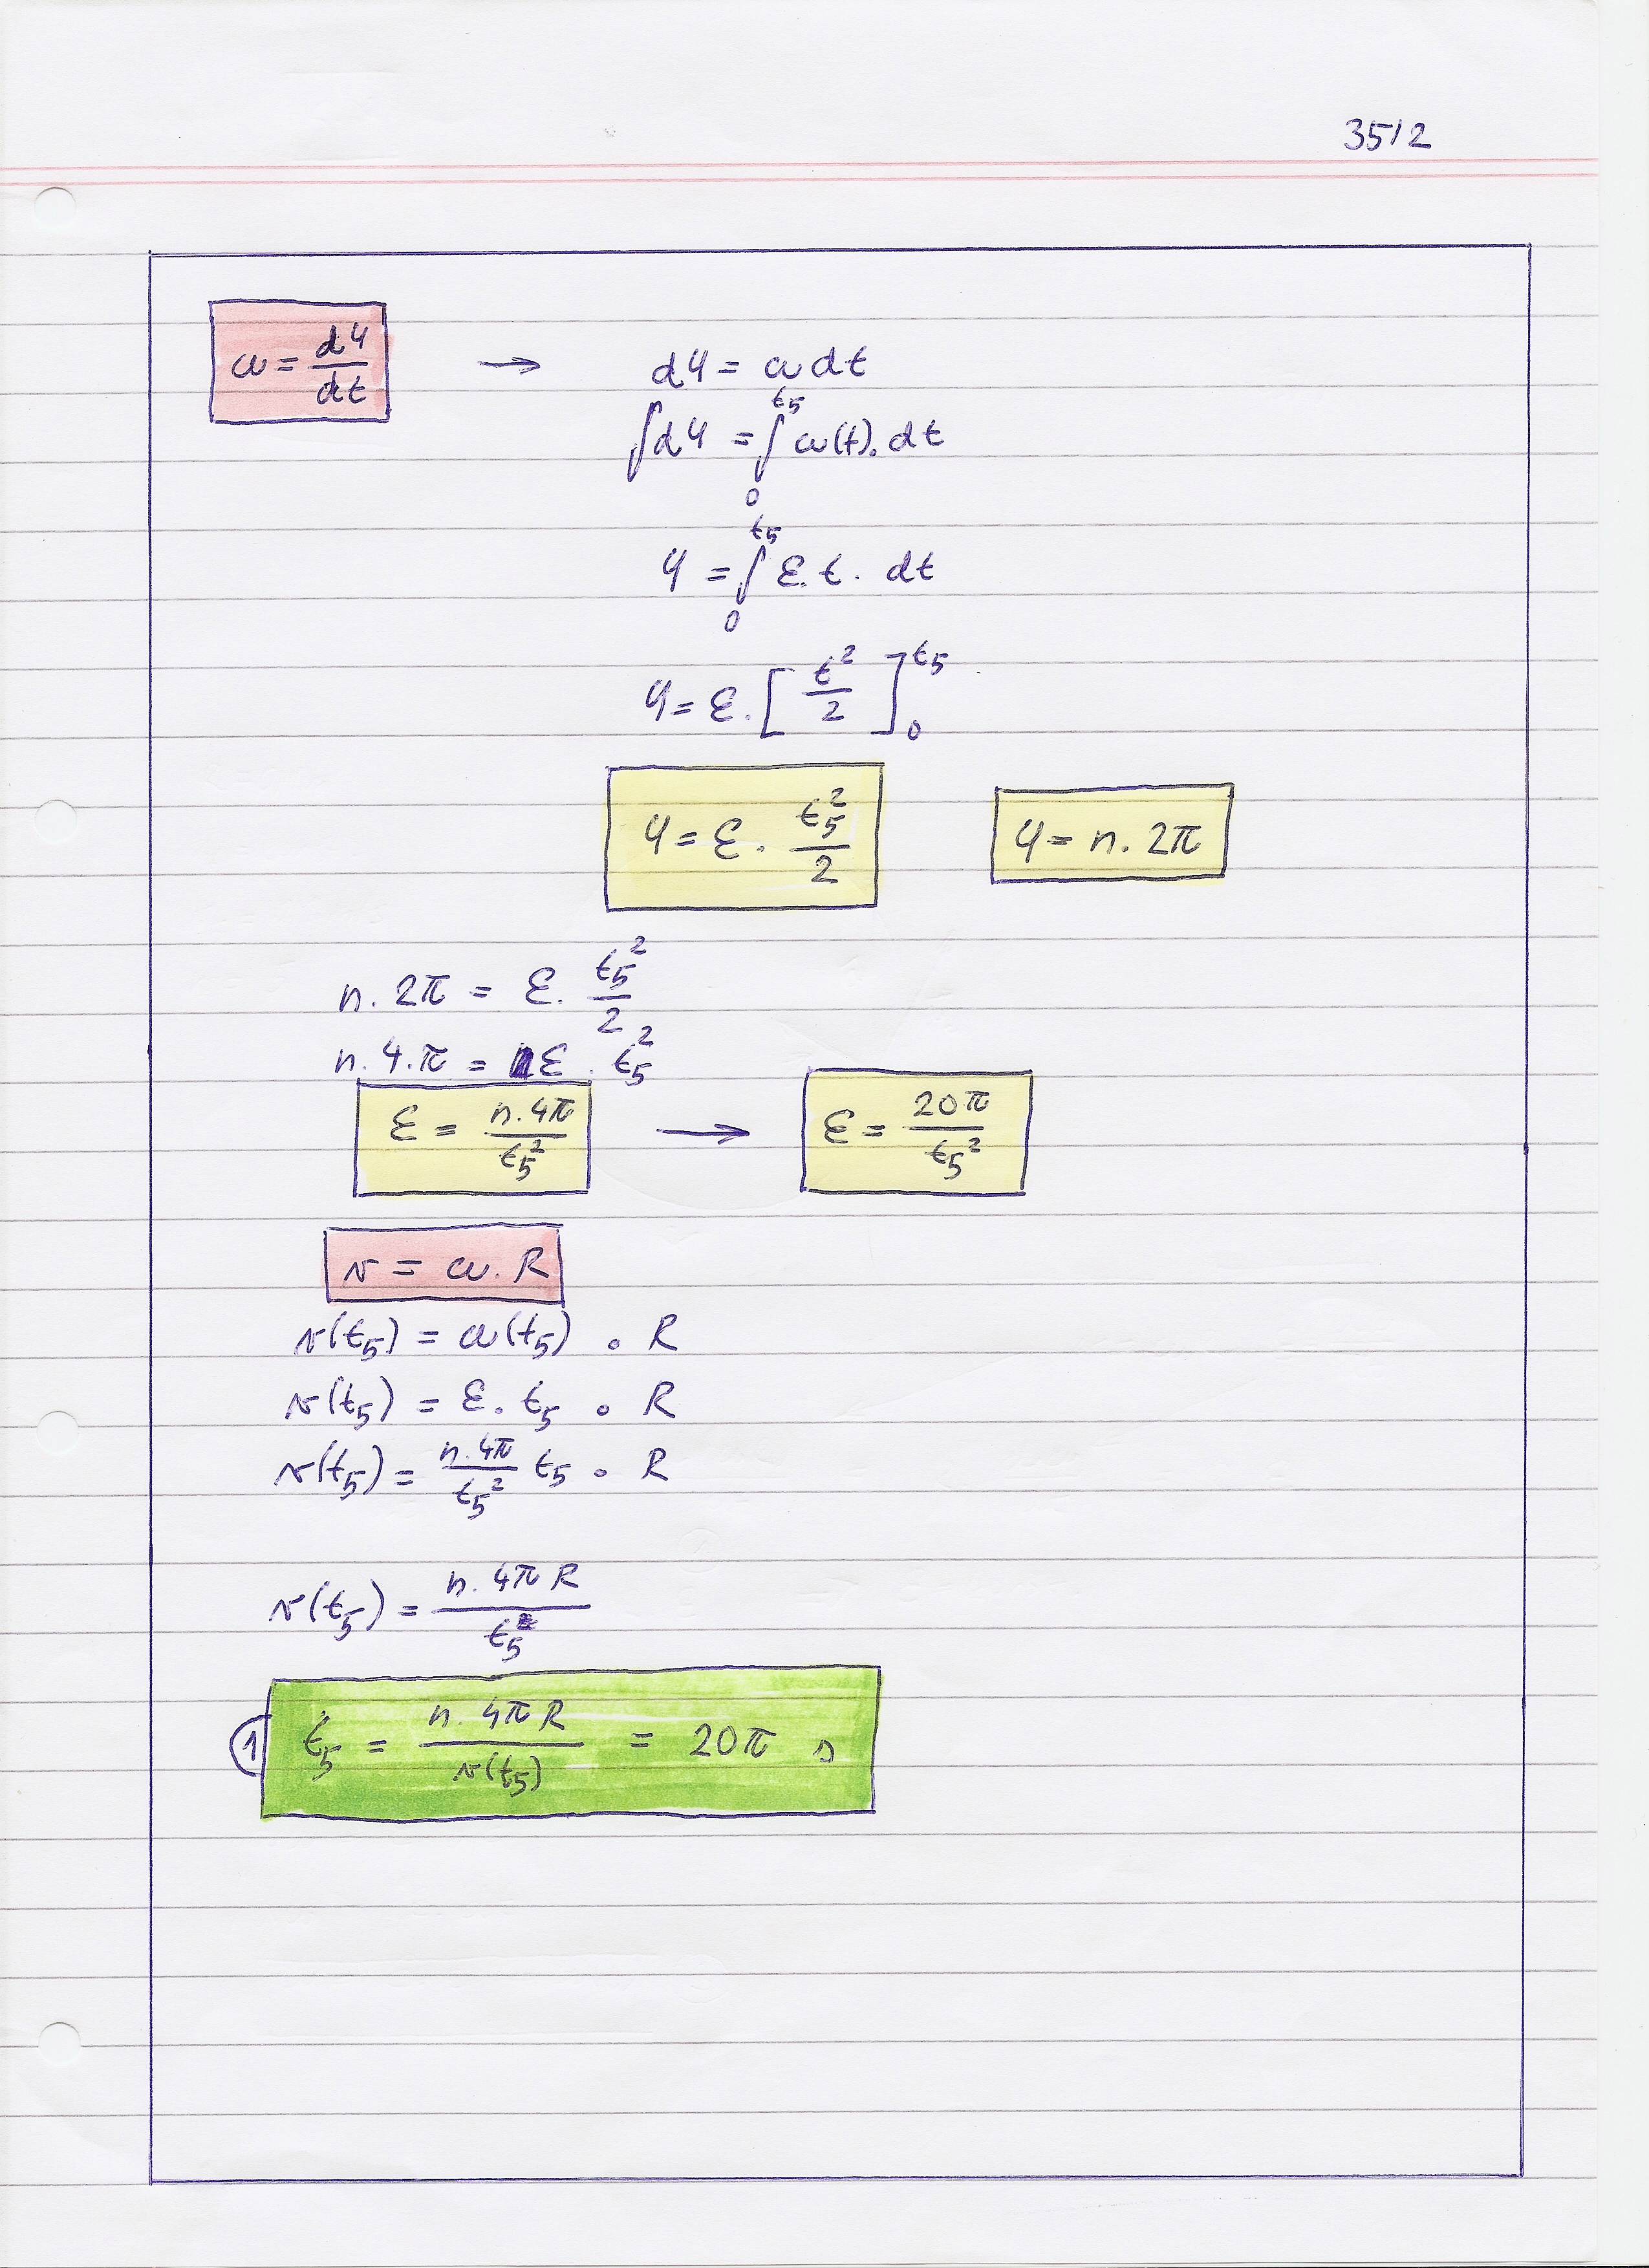 35/2
ω = dφ/dt → dφ = ω dt
∫dφ = ∫₀^t₅ ω(t). dt
φ = ∫₀^t₅ ε. t. dt
φ = ε. [t²/2]₀^t₅
φ = ε. t₅²/2 φ = n. 2π
n. 2π = ε. t₅²/2
n. 4. π = ε. t₅²
ε = n. 4π/t₅² → ε = 20π/t₅²
v = ω. R
v(t₅) = ω(t₅) . R
v(t₅) = ε. t₅ . R
v(t₅) = n. 4π/t₅² t₅ . R
v(t₅) = n. 4π R/t₅
① t₅ = n. 4π R/v(t₅) = 20π s